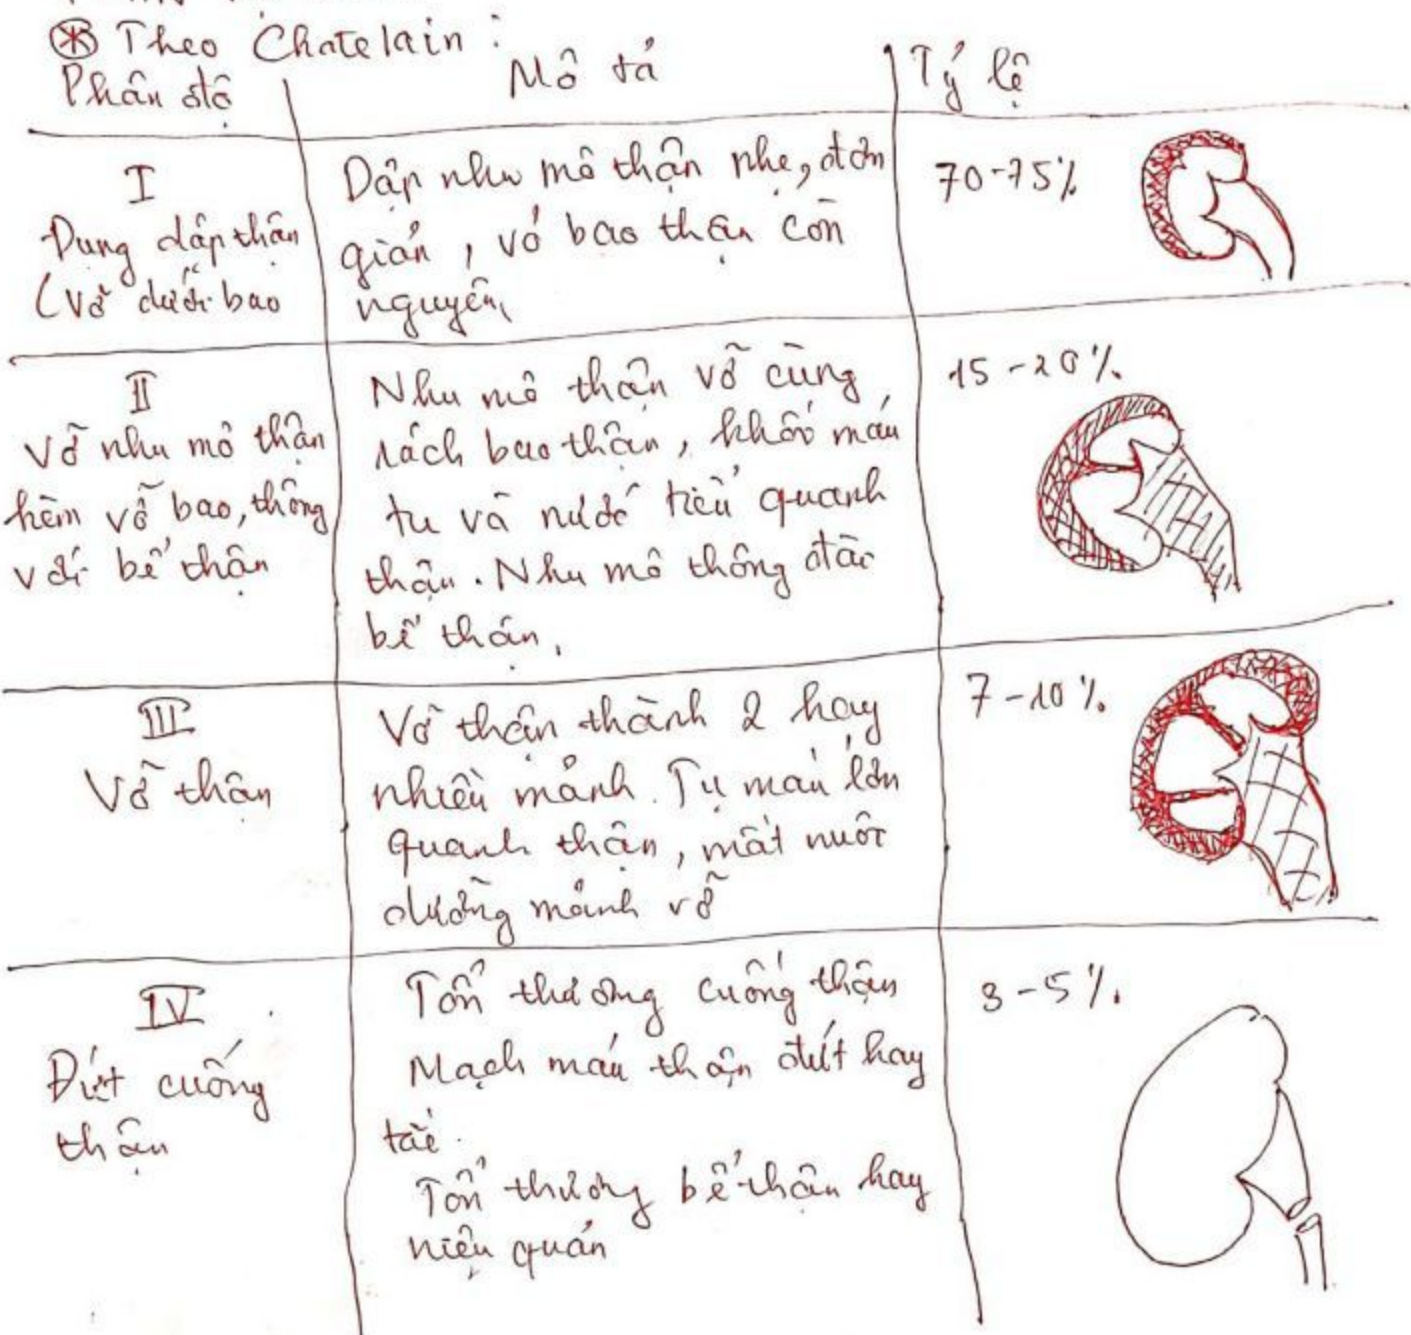 ⊛ Theo Chatelain :
Phân độ
Mô tả
Tỷ lệ
I
Dụng dập thận
(vỡ dưới bao
Dập nhu mô thận nhẹ, đơn
giản, vỏ bao thận còn
nguyên,
70-75%
II
Vỡ nhu mô thận
kèm vỡ bao, thông
với bể thận
Nhu mô thận vỡ cùng
rách bao thận, khối máu
tụ và nước tiểu quanh
thận. Nhu mô thông đài
bể thận.
15-20%
III
Vỡ thận
Vỡ thận thành 2 hay
nhiều mảnh. Tụ máu lớn
quanh thận, mất nuôi
dưỡng mảnh vỡ
7-10%
IV
Đứt cuống
thận
Tổn thương cuống thận
Mạch máu thận đứt hay
tắc.
Tổn thương bể thận hay
niệu quản
3-5%